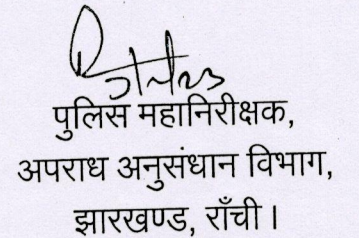 पुलिस महानिरीक्षक,
अपराध अनुसंधान विभाग,
झारखण्ड, राँची।